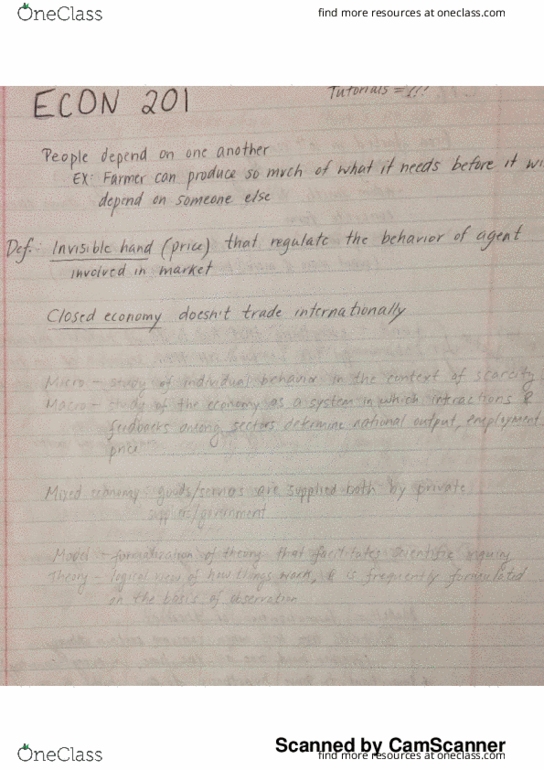 OneClass
find more resources at oneclass.com
Tutorials =
ECON 201
People depend on one another
EX: Farmer can produce so much of what it needs before it wi
depend on someone else
Def: Invisible hand (price) that regulate the behavior of agent
involved in market
Closed economy doesn't trade internationally
Micro - study of individual behavior in the context of scarcity
Macro - study of the economy as a system in which interactions &
feedbacks among sectors determine national output, employment
price
Mixed economy goods/services are supplied both by private
Model - formalization of theory that facilitates scientific inquiry
Theory - logical view of how things work, & is frequently formulated
on the basis of observation
Scanned by CamScanner
OneClass
find more resources at oneclass.com